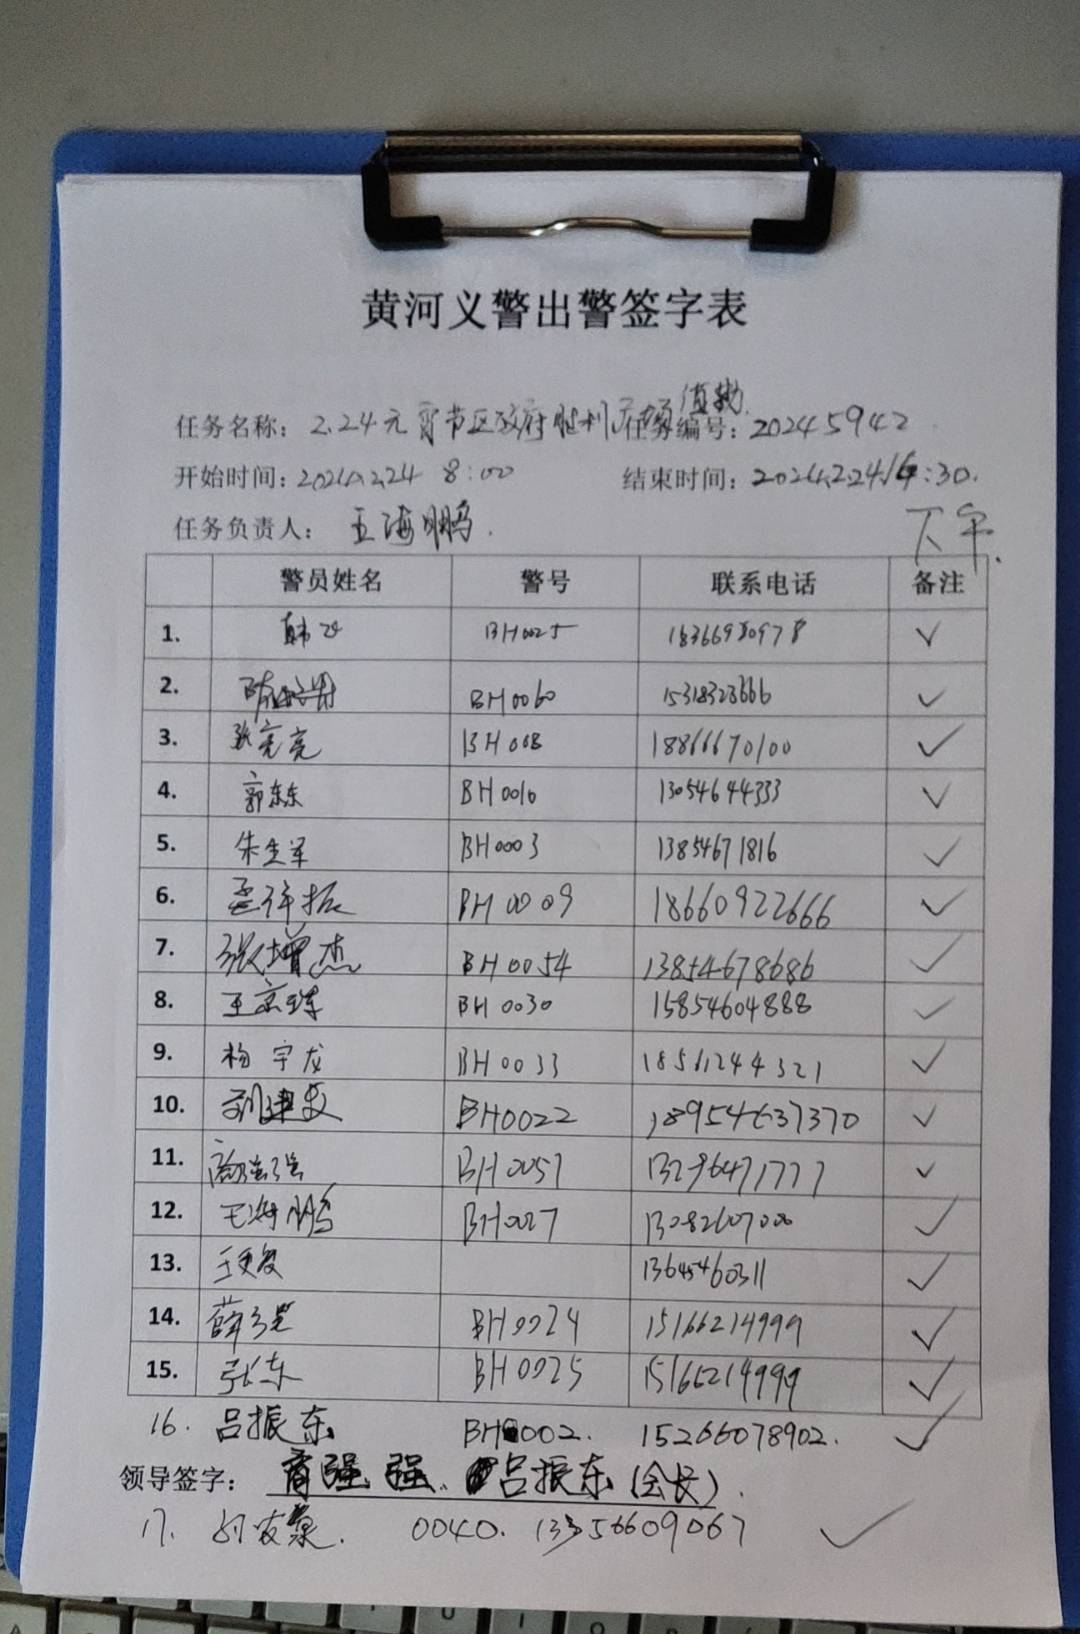 黄河义警出警签字表
值勤
任务名称：2.24元宵节区政府胜利 任务编号：20245942
开始时间：2024.2.24 8:00 结束时间：2024.2.24 16:30.
任务负责人：王海鹏.
下午.
警员姓名 警号 联系电话 备注
1. 韩 BH0025 18366980978 ✓
2. BH0060 15318323666 ✓
3. 张亮亮 BH008 18866670100 ✓
4. 郭东东 BH0010 13054644333 ✓
5. 朱 军 BH0003 13854671816 ✓
6. 孟祥振 BH0009 18660922666 ✓
7. 张增杰 BH0054 13854678686 ✓
8. 王京 BH0030 15854604888 ✓
9. 杨宇龙 BH0033 18561244321 ✓
10. 刘建 BH0022 18954637370 ✓
11. 商强强 BH0057 13296471777 ✓
12. 王海鹏 BH0027 13082607000 ✓
13. 王 13645460311 ✓
14. 薛 BH0024 15166214999 ✓
15. 张东 BH0025 15166214999 ✓
16. 吕振东 BH0002. 15266078902. ✓
领导签字：商强强. 吕振东(会长).
17. 0040. 13356609067 ✓